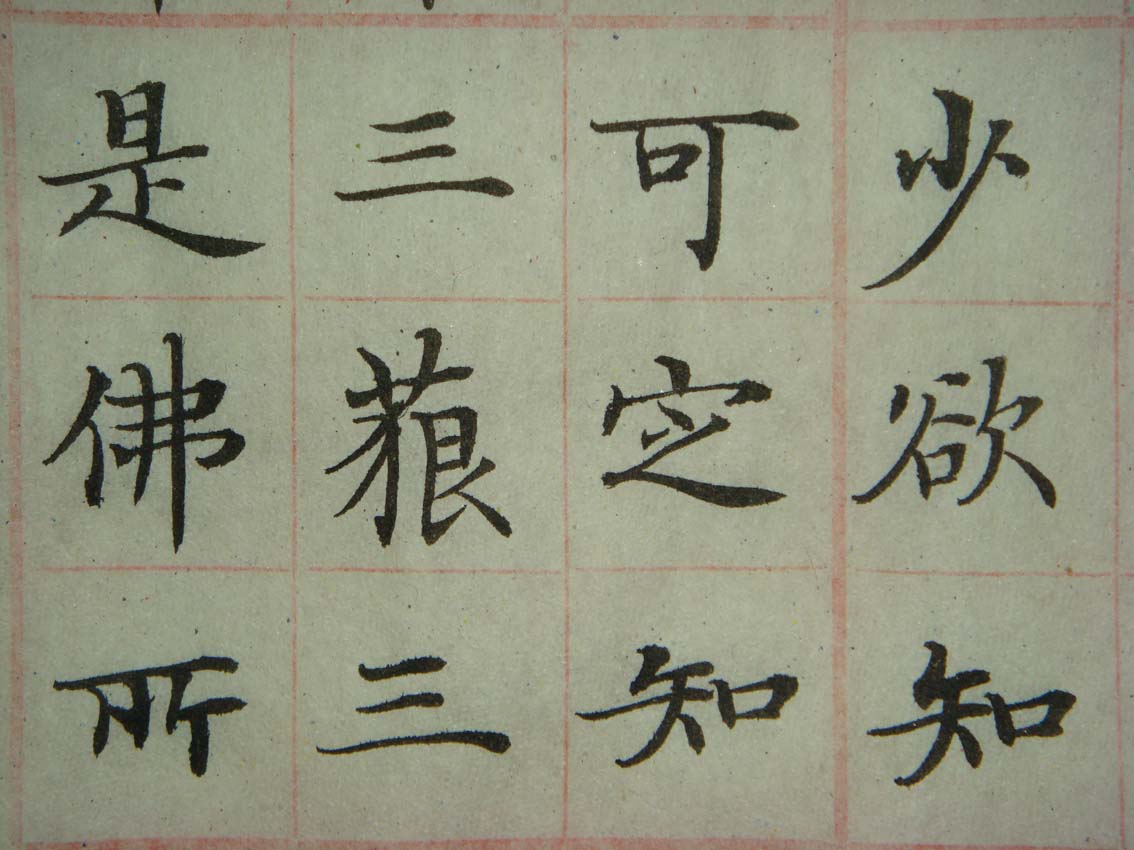 少欲知
可定知
三藐三
是佛所